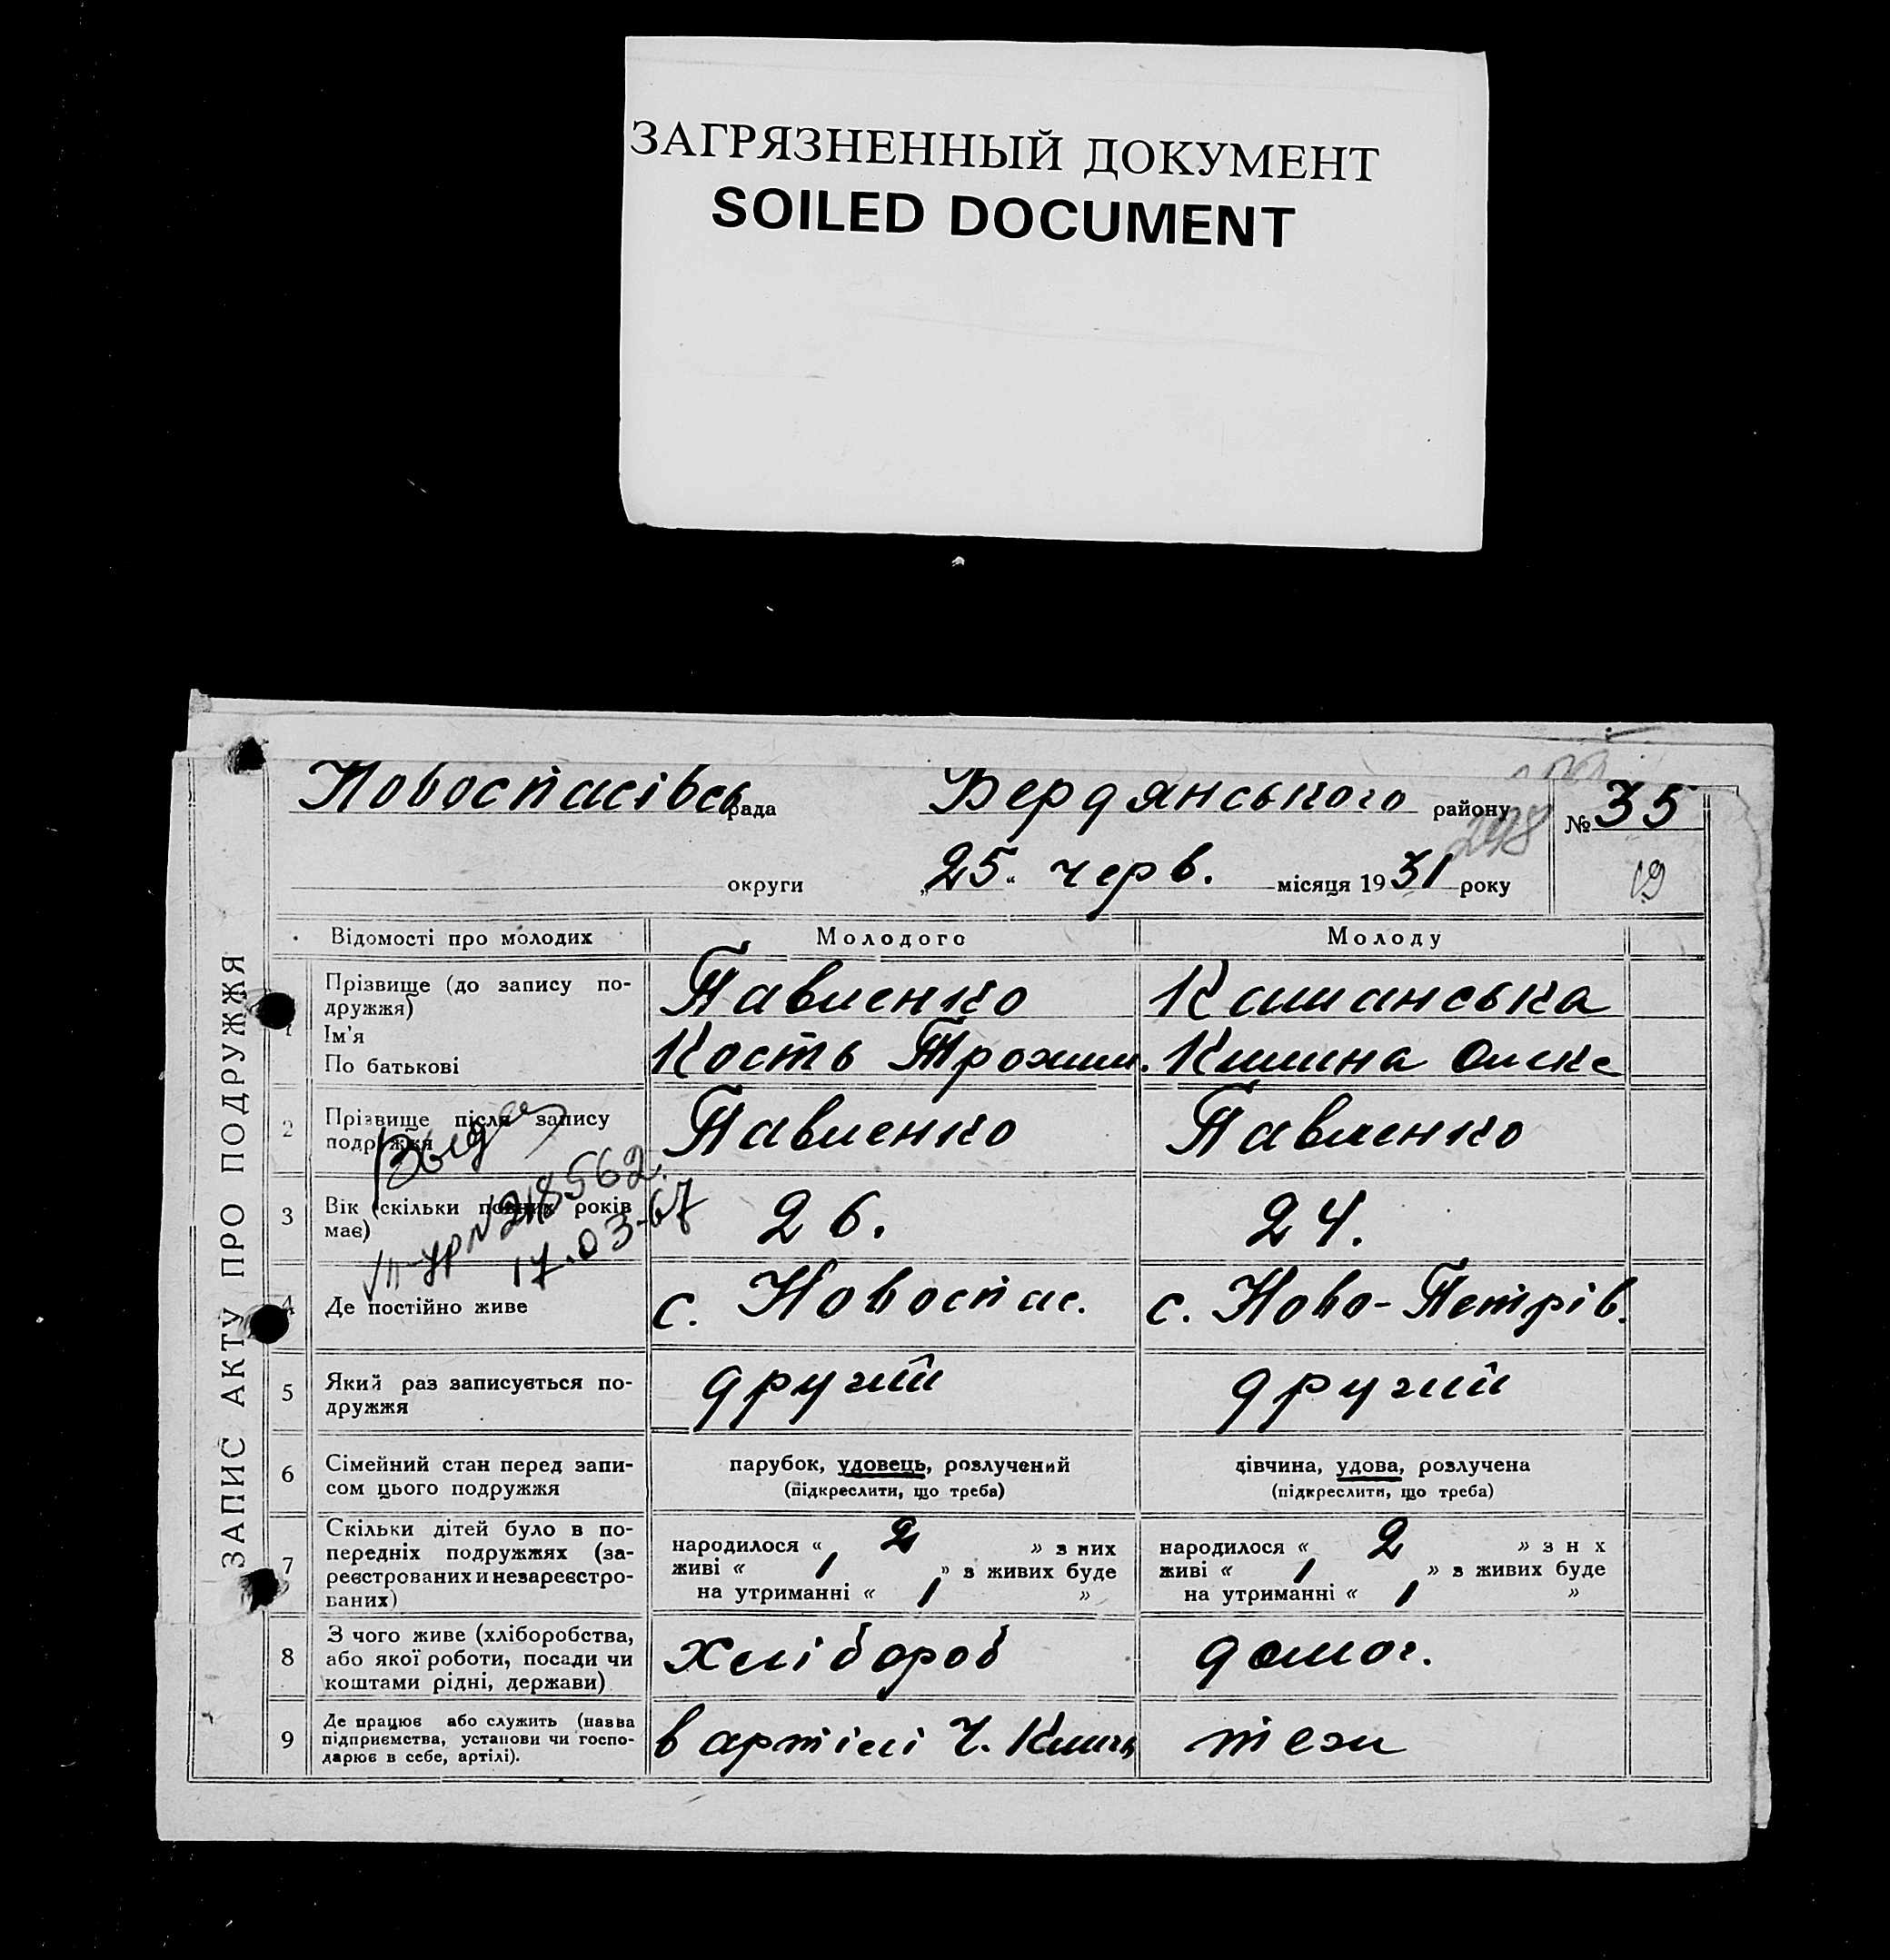 ЗАГРЯЗНЕННЫЙ ДОКУМЕНТ
SOILED DOCUMENT
Новоспасівсь рада Бердянського району № 35
248
округи „25“ черв. місяця 1931 року
19
ЗАПИС АКТУ ПРО ПОДРУЖЖЯ
Відомості про молодих Молодого Молоду
1
Прізвище (до запису по-
дружжя)
Павленко
Ім'я
По батькові
Кость Трохим. Олекс
2
Прізвище після запису
подружжя
Павленко Павленко
3
Вік (скільки повних років
має)
26. 24.
№ 218562
17.03-67
4
Де постійно живе
с. Новоспас. с. Ново-Петрів.
5
Який раз записується по-
дружжя
другий другий
6
Сімейний стан перед запи-
сом цього подружжя
парубок, удовець, розлучений
(підкреслити, що треба)
дівчина, удова, розлучена
(підкреслити, що треба)
7
Скільки дітей було в по-
передніх подружжях (за-
реєстрованих и незареєстро-
ваних)
народилося „ 2 " з них
живі „ 1 " з живих буде
на утриманні „ 1 "
народилося „ 2 " з н х
живі „ 1 " з живих буде
на утриманні „ 1 "
8
З чого живе (хліборобства,
або якої роботи, посади чи
коштами рідні, держави)
хлібороб домог.
9
Де працює або служить (назва
підприємства, установи чи госпо-
дарює в себе, артілі).
в артілі Ч. теж